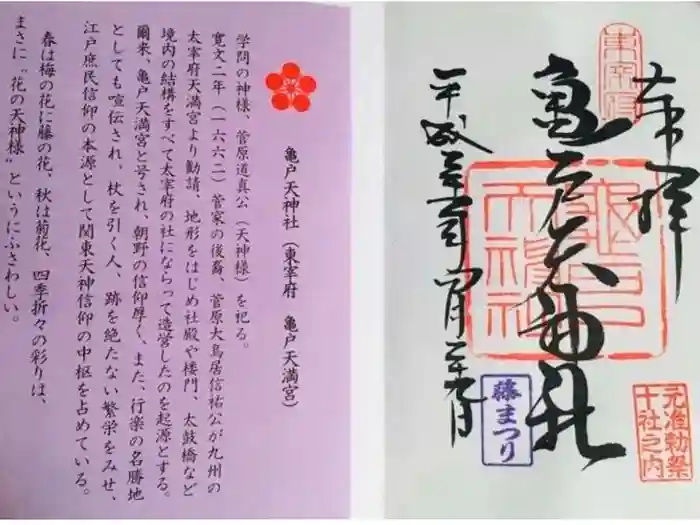 奉拝
亀戸天神社
平成二十八年四月二十九日
東宰府
亀戸天神社
元准勅祭
十社之内
藤まつり
亀戸天神社(東宰府 亀戸天満宮)
学問の神様、菅原道真公(天神様)を祀る。
寛文二年(一六六二)菅家の後裔、菅原大鳥居信祐公が九州の
太宰府天満宮より勧請、地形をはじめ社殿や楼門、太鼓橋など
境内の結構をすべて太宰府の社にならって造営したのを起源とする。
爾来、亀戸天満宮と号され、朝野の信仰厚く、また、行楽の名勝地
としても宣伝され、杖を引く人、跡を絶たない繁栄をみせ、
江戸庶民信仰の本源として関東天神信仰の中枢を占めている。
春は梅の花に藤の花、秋は菊花、四季折々の彩りは、
まさに"花の天神様"というにふさわしい。